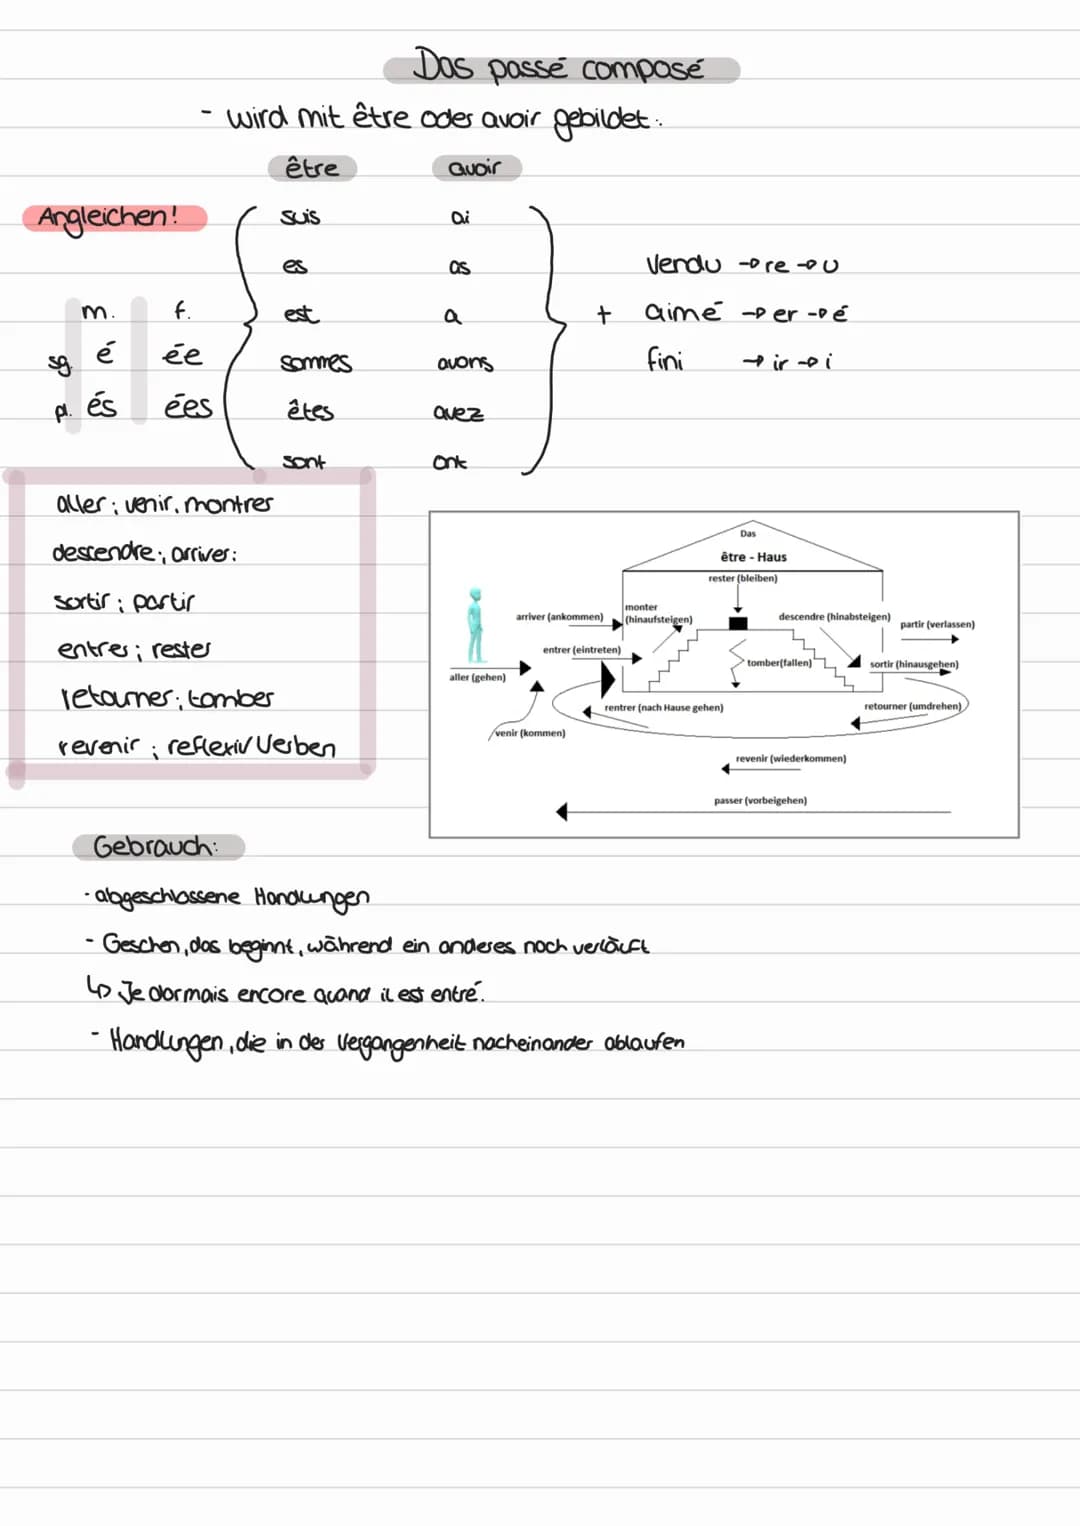 Das passé composé
- wird mit être oder avoir gebildet:
être avoir
Angleichen! suis ai
es as
vendu → re → u
m. f. est a + aimé → er → é
sg. é ée sommes avons fini → ir → i
pl. és ées êtes avez
sont ont
aller; venir, montrer
descendre; arriver:
sortir; partir
entrer; rester
retourner; tomber
revenir; reflexiv Verben
Das
être - Haus
rester (bleiben)
monter
(hinaufsteigen)
arriver (ankommen)
descendre (hinabsteigen)
partir (verlassen)
entrer (eintreten)
tomber(fallen)
sortir (hinausgehen)
aller (gehen)
rentrer (nach Hause gehen)
retourner (umdrehen)
venir (kommen)
revenir (wiederkommen)
passer (vorbeigehen)
Gebrauch:
- abgeschlossene Handlungen
- Geschen, das beginnt, während ein anderes noch verläuft
↳ Je dormais encore quand il est entré.
- Handlungen, die in der Vergangenheit nacheinander ablaufen